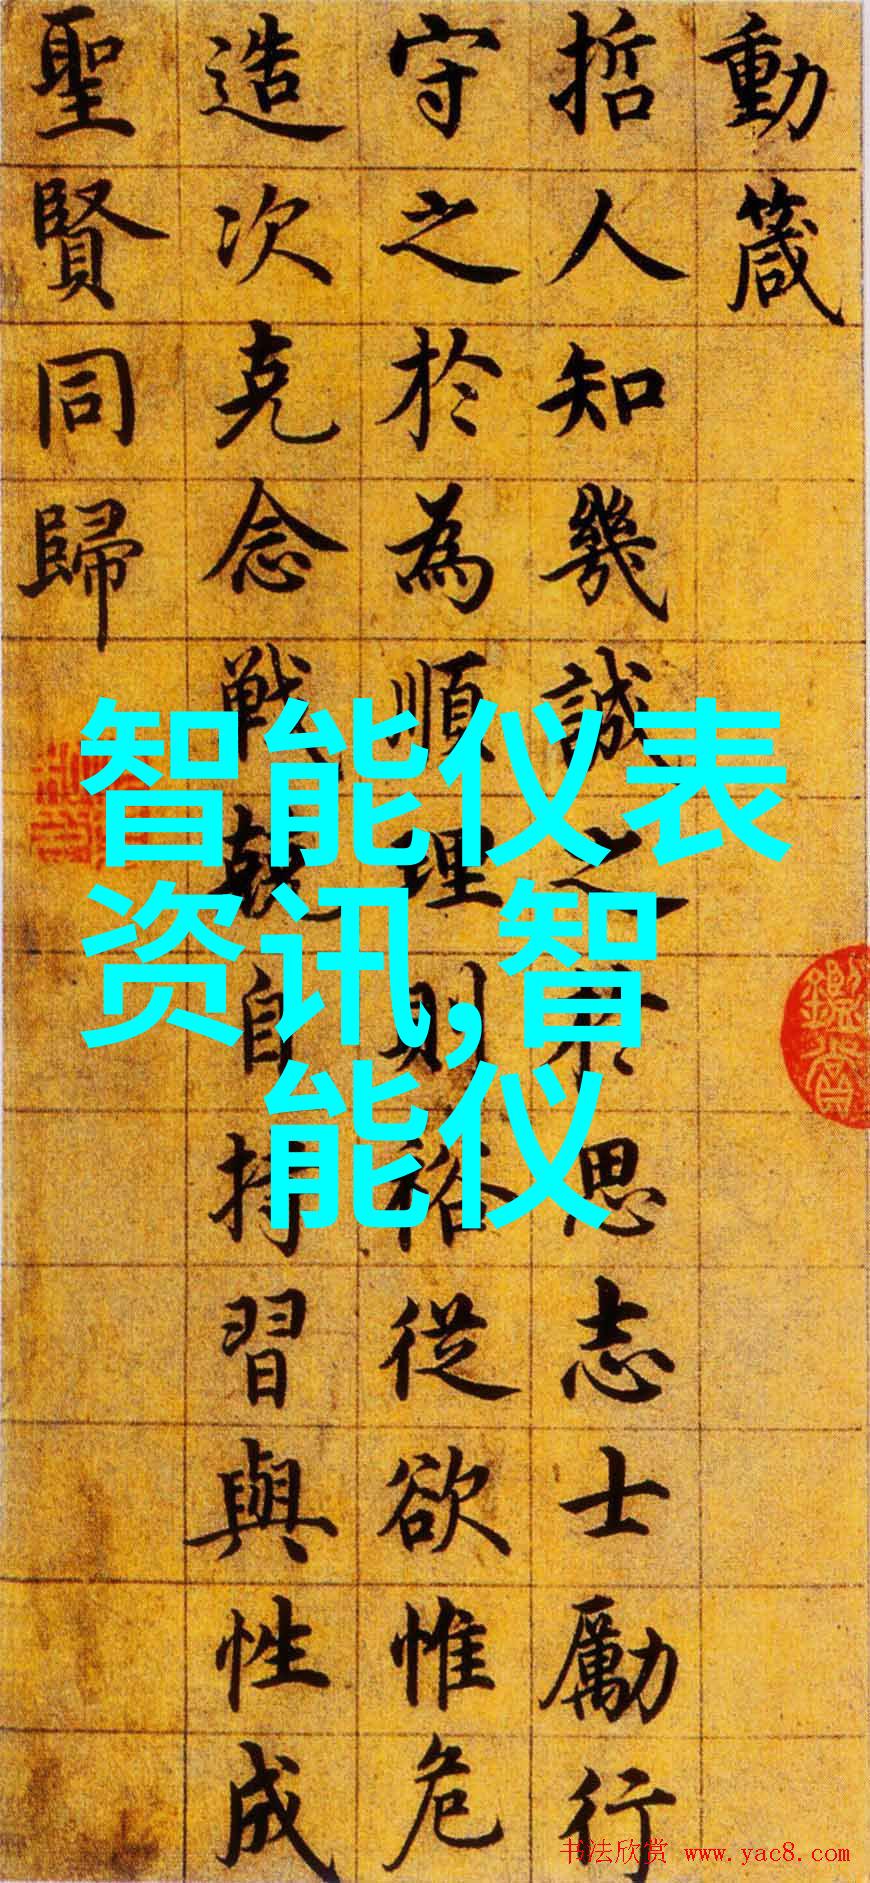 動箴
哲人知幾誠之於思志士勵行
守之於為順理則裕從欲惟危
造次克念戰兢自持習與性成
聖賢同歸
智能仪表
资讯,智
能仪
书法欣赏 www.yac8.com